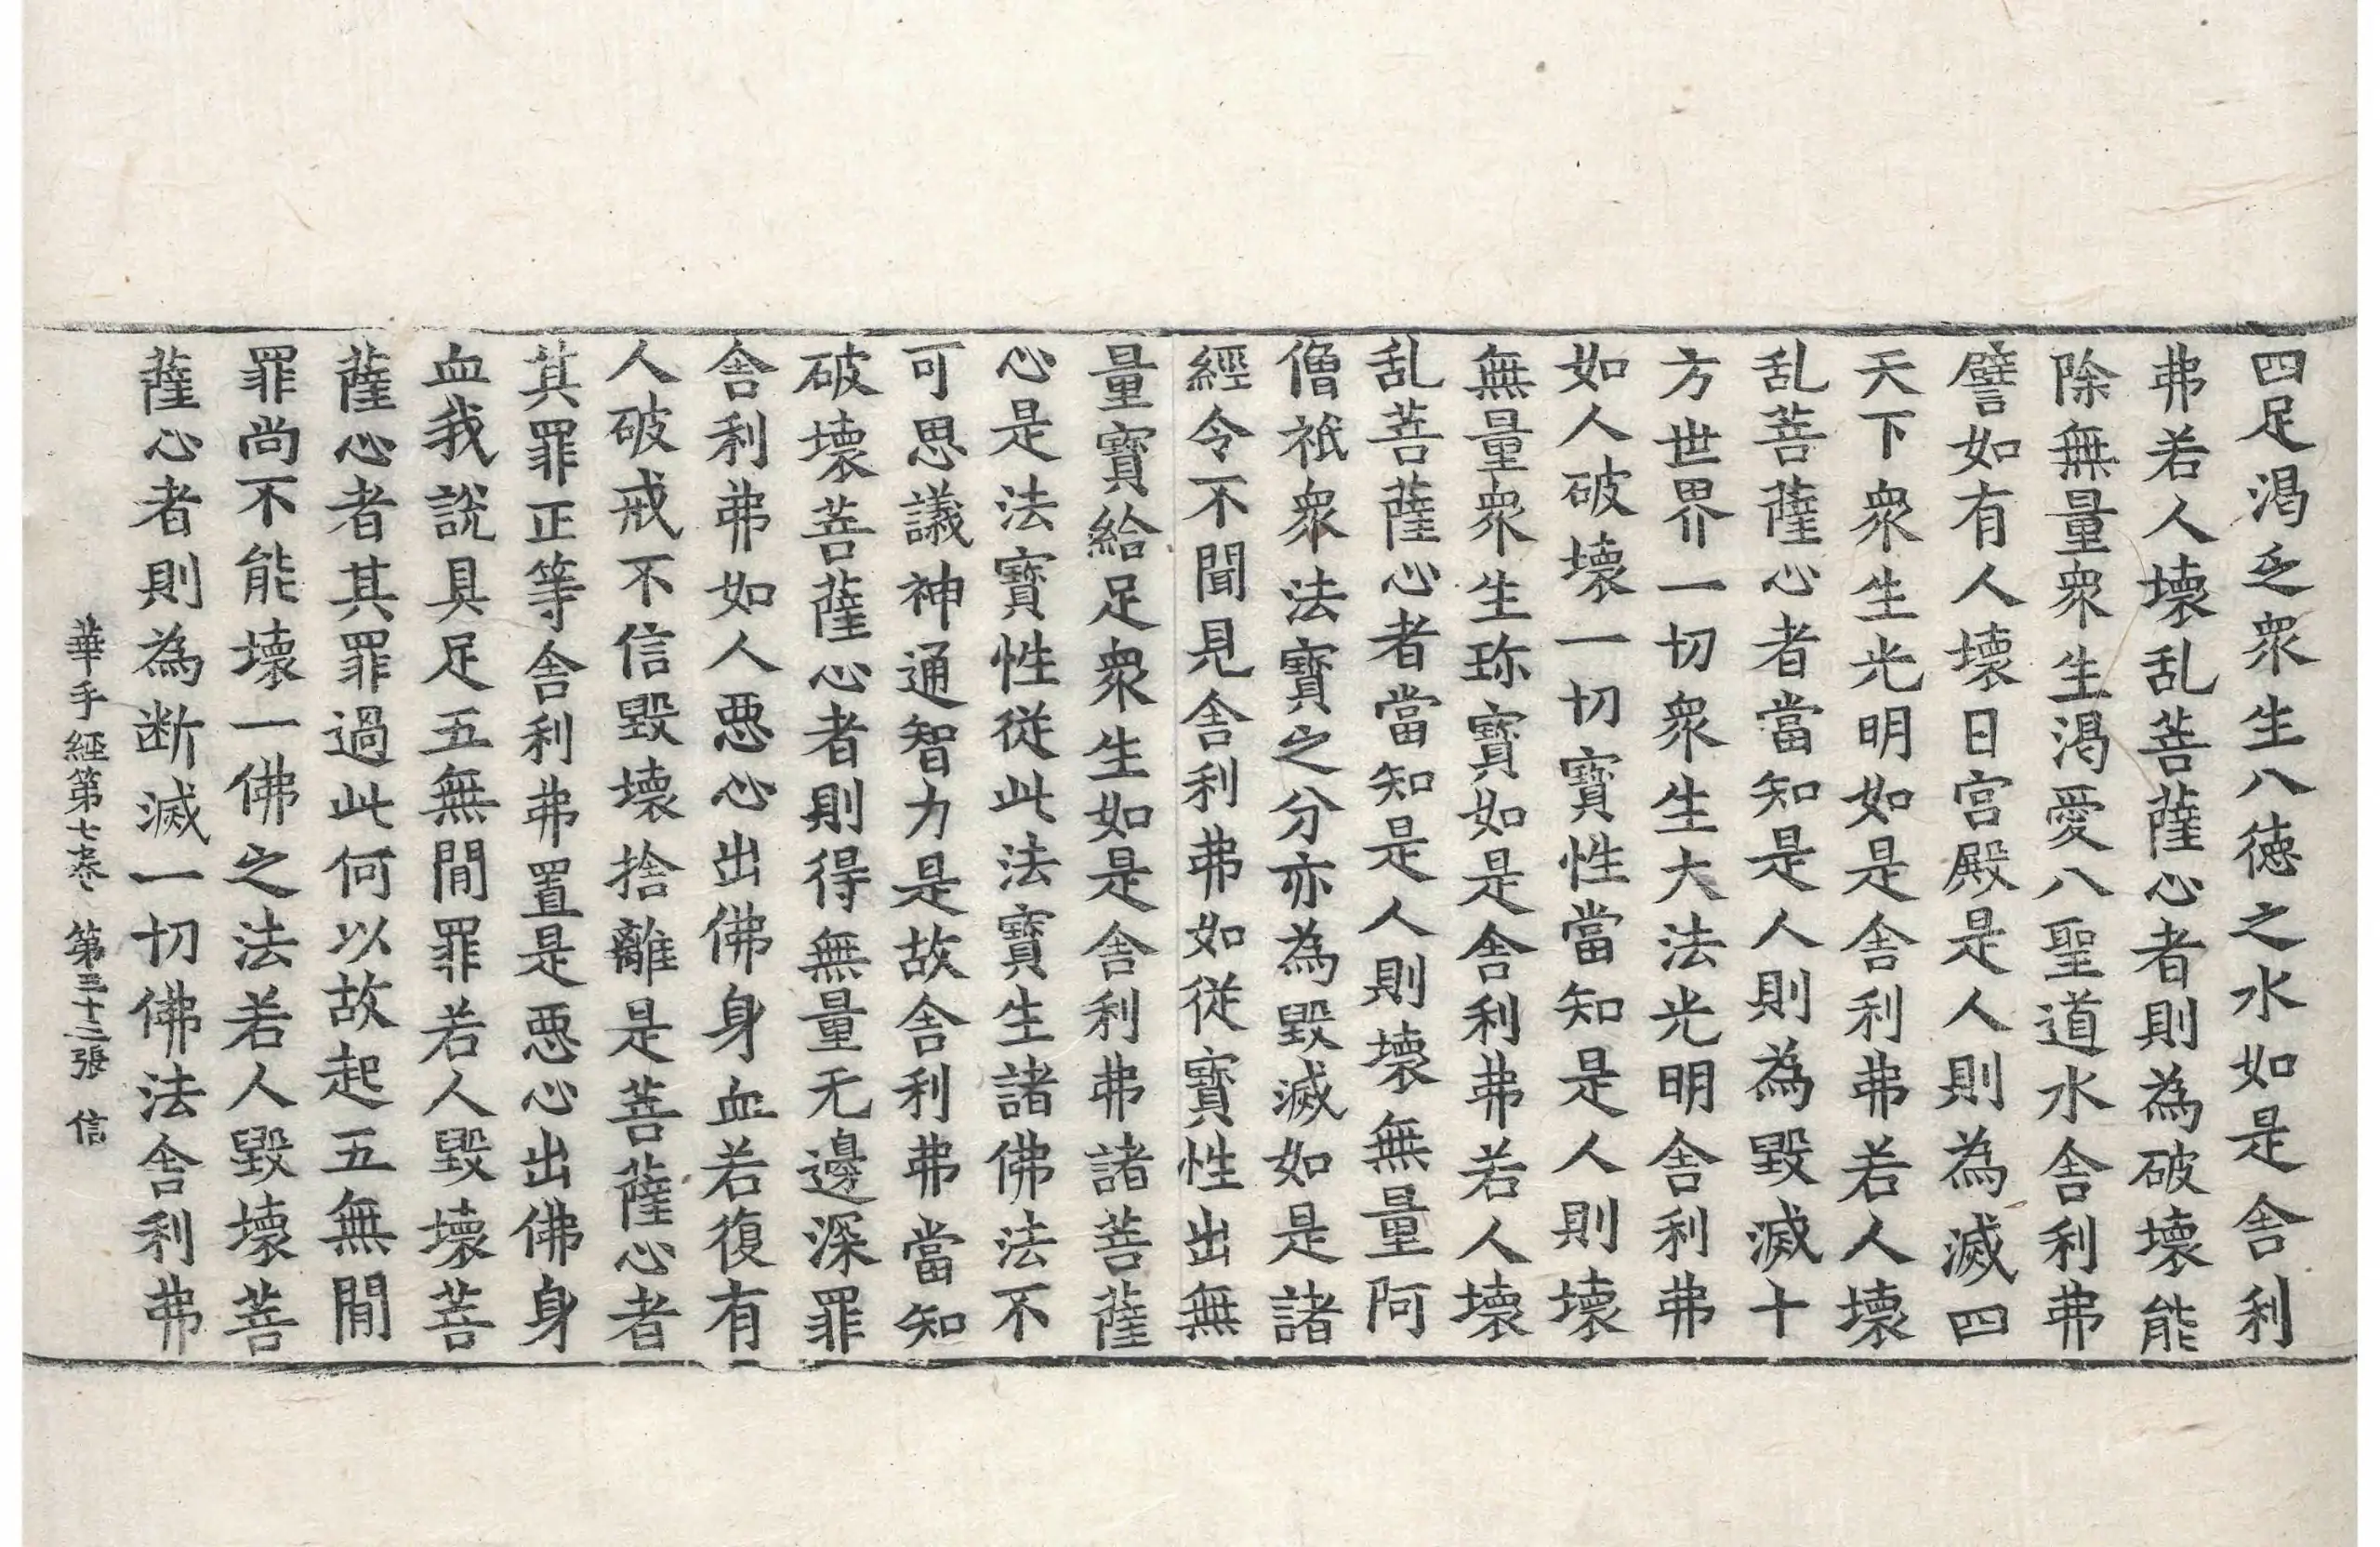 四足渴乏衆生八徳之水如是舎利
弗若人壞乱菩薩心者則為破壞能
除無量衆生渴愛八聖道水舎利弗
譬如有人壞日宫殿是人則為滅四
天下衆生光明如是舎利弗若人壞
乱菩薩心者當知是人則為毀滅十
方世界一切衆生大法光明舎利弗
如人破壞一切寶性當知是人則壞
無量衆生珎寶如是舎利弗若人壞
乱菩薩心者當知是人則壞無量阿
僧祇衆法寶之分亦為毀滅如是諸
經令不聞見舎利弗如従寶性出無
量寶給足衆生如是舎利弗諸菩薩
心是法寶性從此法寶生諸佛法不
可思議神通智力是故舎利弗當知
破壞菩薩心者則得無量无邊深罪
舎利弗如人惡心出佛身血若復有
人破戒不信毀壞捨離是菩薩心者
其罪正等舎利弗置是惡心出佛身
血我說具足五無間罪若人毀壞菩
薩心者其罪過此何以故起五無間
罪尚不能壞一佛之法若人毀壞菩
薩心者則為断滅一切佛法舎利弗
華手經第七卷 第三十二張 信